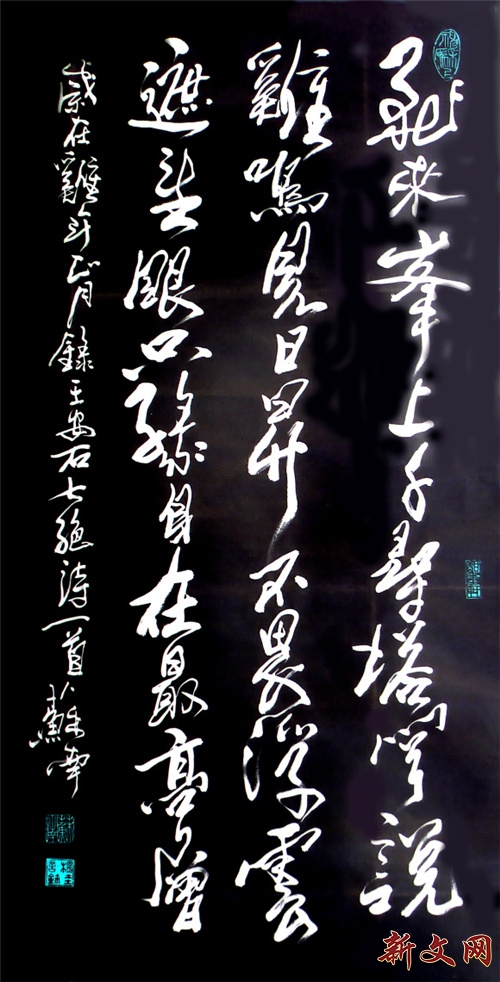 飛來峯上千尋塔聞說
雞鳴見日昇不畏浮雲
遮望眼只緣身在最高層
歲在雞年正月錄王安石七絕詩一首
新文网